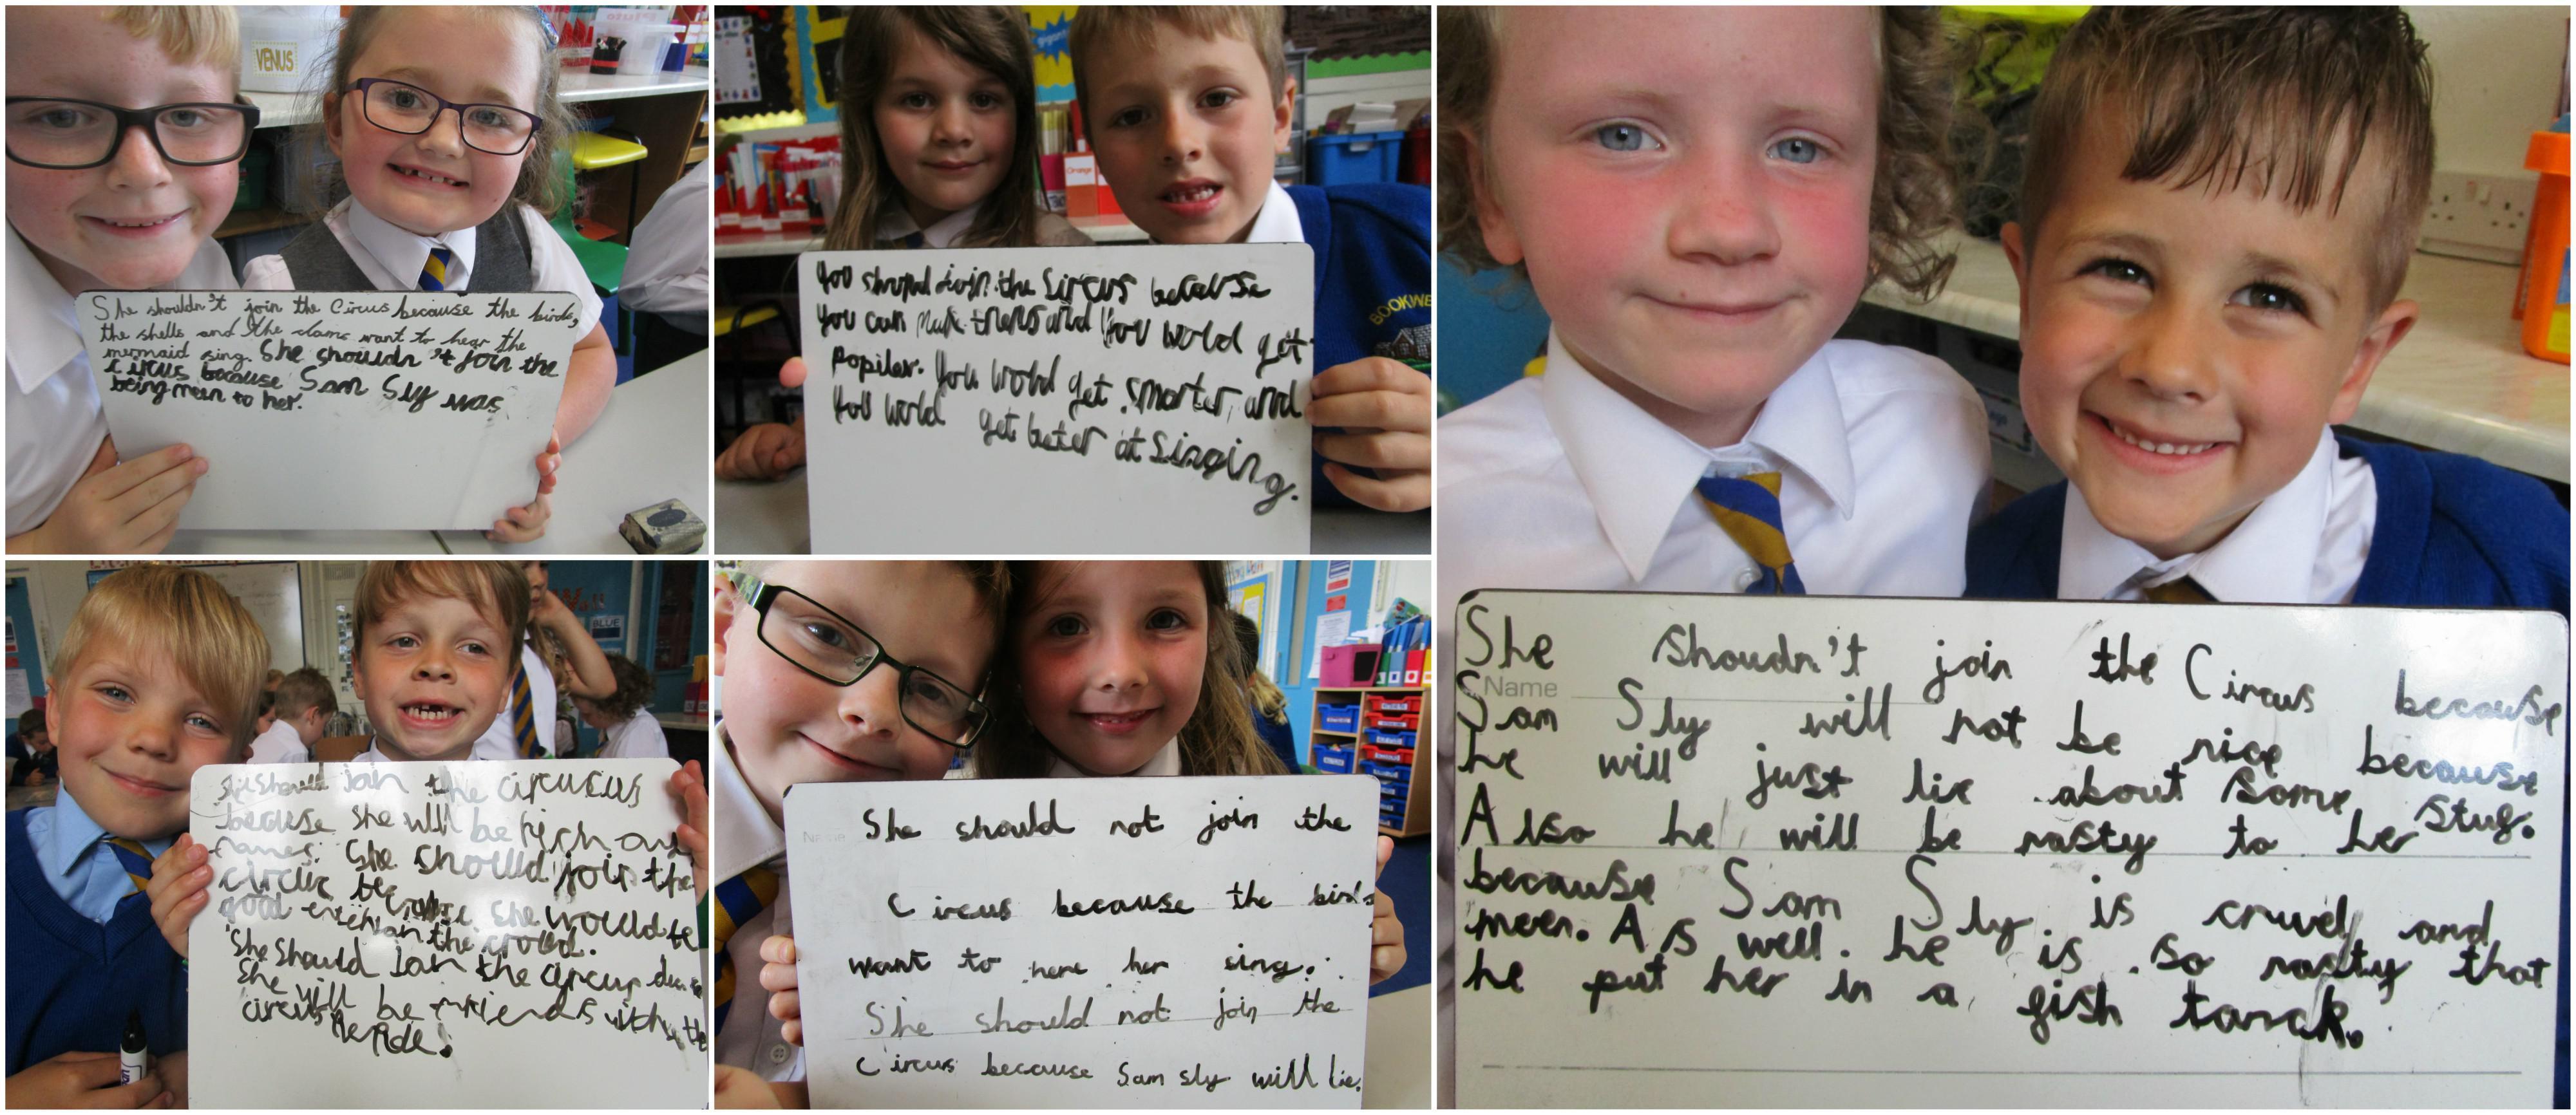 VENUS
She shouldn't join the Circus because the birds,
the shells and the clams want to hear the
mermaid sing. She shouldn't join the
circus because Sam Sly was
being mean to her.
Orange
BOOKWE
You should join the Sircus because
you can and You world get
popiler. You world get smarter, and
You world get beter at Singing.
She Shoudn't join the Circus because
Name
Sam Sly will not be nice because
he will just lie about Some Stuf.
Also he will be nasty to her
because Sam Sly is cruvel and
meen. As well. he is so nasty that
he put her in a fish tanck.
BLUE
She should Jan the circucus
because she will be rich and
She should join the
she would be
good in the croud.
She Should Jan the
she will be friends with the
circus
She should not join the
Circus because the birds
want to here her sing.
She should not join the
Circus because Sam sly will lie.